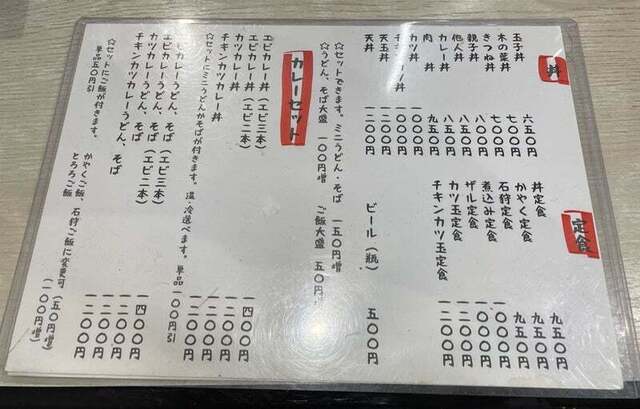 丼
玉子丼 六五〇円
木の葉丼 七〇〇円
きつね丼 七〇〇円
親子丼 八〇〇円
他人丼 八五〇円
カレー丼 八五〇円
肉丼 九五〇円
丼 一〇〇〇円
チキンカツ丼 一〇〇〇円
天玉丼 一一〇〇円
天丼 一二〇〇円
定食
丼定食 九五〇円
かやく定食 九五〇円
石狩定食 九五〇円
煮込み定食 一〇〇〇円
ザル定食 一〇〇〇円
カツ玉定食 一二〇〇円
チキンカツ玉定食 一二〇〇円
ビール（瓶） 五〇〇円
☆セットできます。ミニうどん・そば 一五〇円増
☆うどん、そば大盛 一〇〇円増 ご飯大盛 五〇円
カレーセット
エビカレー丼（エビ三本） 一四〇〇円
エビカレー丼（エビ二本） 一二〇〇円
カツカレー丼 一二〇〇円
チキンカツカレー丼 一二〇〇円
☆セットにミニうどんかそばが付きます。温・冷選べます。単品一〇〇円引
カレーうどん、そば（エビ三本） 一四〇〇円
エビカレーうどん、そば（エビ二本） 一二〇〇円
カツカレーうどん、そば 一二〇〇円
チキンカツカレーうどん、そば 一二〇〇円
☆セットにご飯が付きます。
単品五〇円引
かやくご飯、石狩ご飯に変更可（五〇円増）
とろろご飯（一〇〇円増）